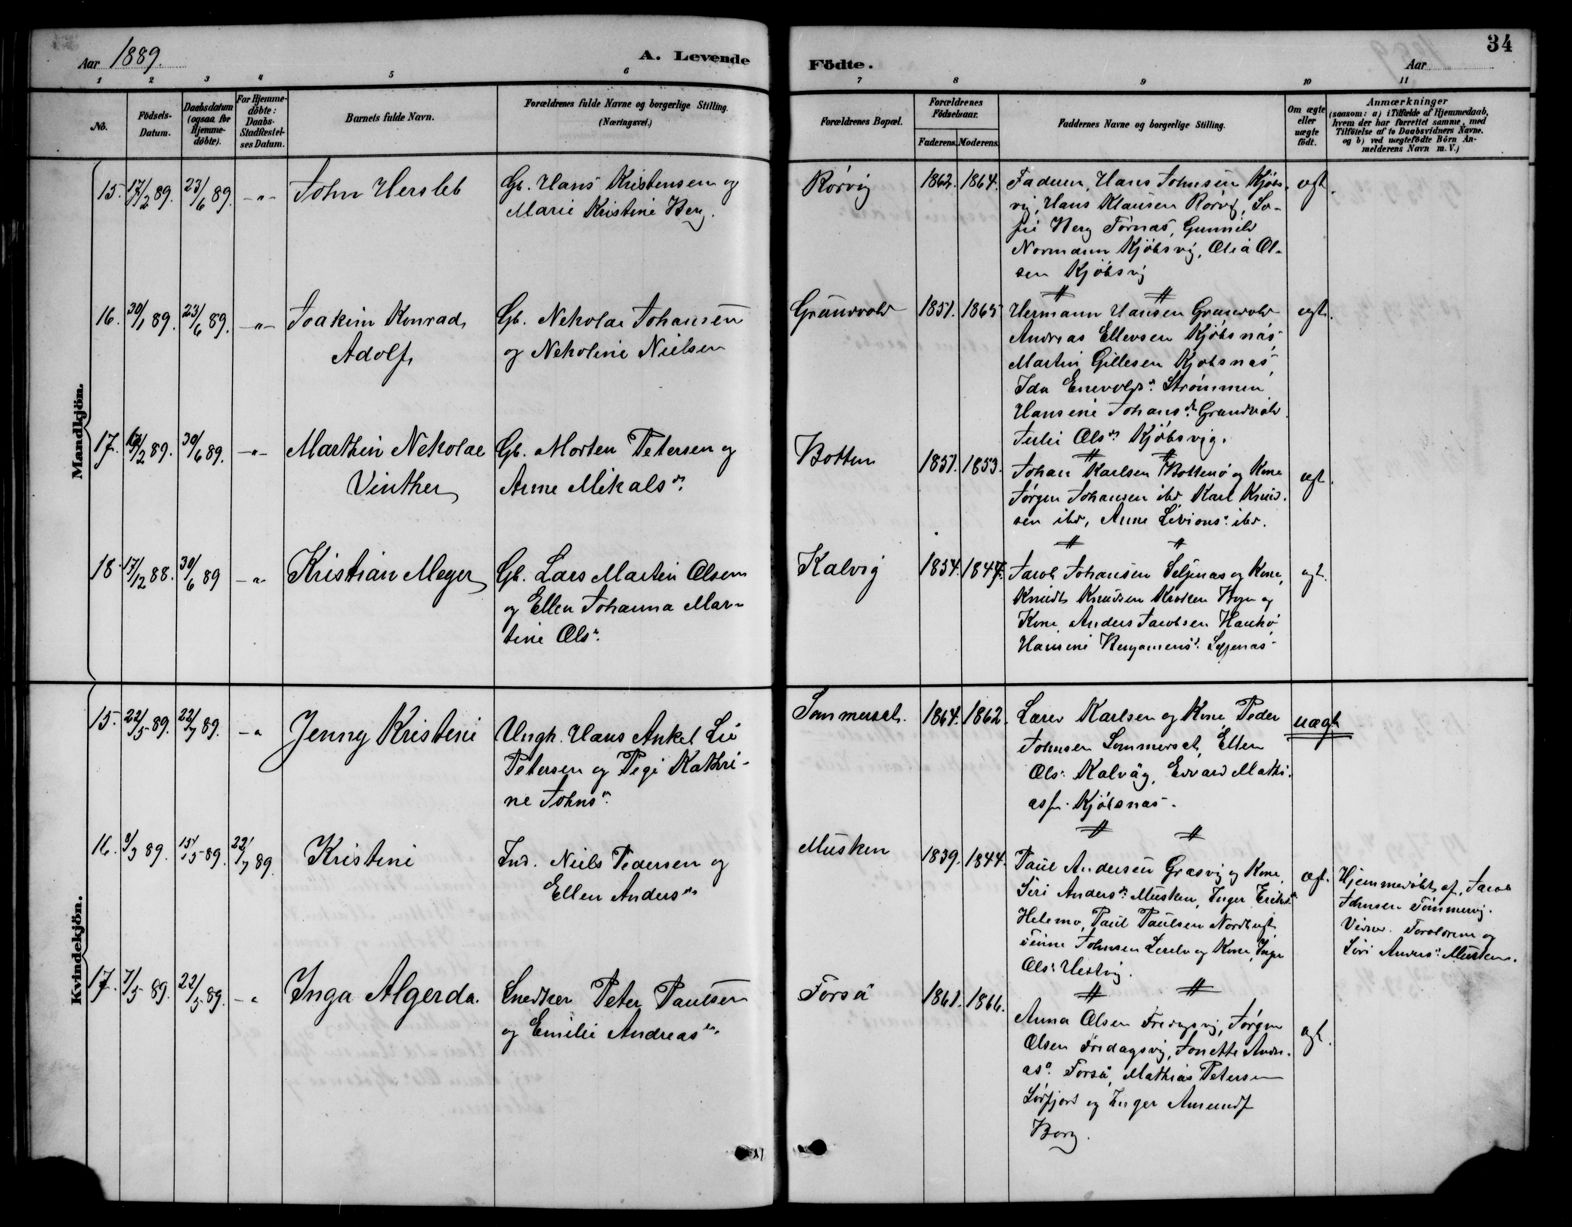 Aar 1889.
A. Levende
Fødte.
Aar
34
1 2 3 4 5 6 7 8 9 10 11
No.
Fødsels-
Datum.
Daabsdatum
(ogsaa for
Hjemme-
døbte).
For Hjemme-
døbte:
Daabs-
Stadfæstel-
ses Datum.
Barnets fulde Navn.
Forældrenes fulde Navne og borgerlige Stilling.
(Næringsvei.)
Forældrenes Bopæl.
Forældrenes
Fødselsaar.
Faderens. Moderens.
Faddernes Navne og borgerlige Stilling.
Om ægte
eller
uægte
født.
Anmærkninger
(saasom: a) i Tilfælde af Hjemmedaab,
hvem der har forrettet samme, med
Tilføielse af to Daabsvidners Navne,
og b) ved uægtefødte Børn An-
melderens Navn m. V.)
Mandkjön.
15. 17/2 89. 23/6 89. -"- John Hersleb
Gb. Hans Kristensen og
Marie Kristine Berg.
Rørvig 1862. 1864.
Faderen, Hans Johnsen Kjøbs-
vig, Hans Klausen Rørvig, So-
fie Berg Tørnæs, Gunnild
Normann Kjøbsvig, Olia Ol-
sen Kjøbsvig
ægt.
16. 30/1 89. 23/6 89. -"- Joakim Konrad
Adolf
Gb. Nekolai Johansen
og Nekoline Nielsen
Grundvold 1851. 1865
Hermann Hansen Grundvold
Andreas Ellevsen Kjøbsnæs,
Martin Gillesen Kjøbsnæs,
Ida Enevolds. Strømmen
Hansine Johansdr. Grundvold
Julie Olsdr. Kjøbsvig.
ægt.
17. /2 89. 30/6 89. -"- Marthin Nekolai
Vinther
Gb. Morten Petersen og
Anne Mikalsdr.
Botten 1851. 1853.
Johan Karlsen Bottenø og Kone
Jørgen Johansen ibd. Karl Knud-
sen ibd, Anne Levions. ibd.
ægt.
18. 17/12 88. 30/6 89 -"- Kristian Meyer
Gb. Lars Martin Olsen
og Ellen Johanna Mar-
tine Ols.
Kalvig 1854. 1847.
Jacob Johansen Seljenæs og Kone,
Knudt Knudsen
Kone Anders Jacobsen
Hansine Benjamins. Seljenæs
ægt.
Kvindekjön.
15. 22/5 89. 22/7 89. -" Jenny Kristine
Ungk. Hans Ankel Lie
Petersen og Pegi Kathri-
ne Johnsdr.
Sommerset. 1864. 1862.
Karlsen og Kone, Peder
Johnsen Sommerset, Ellen
Ols. Kalvåg, Edvard Mathi-
asf. Kjøbsnæs.
uægt
16. /3 89. 15/5 89. 22/7 89. Kristine
Ind. Niels Pedersen og
Ellen Andersdr.
Musken 1839. 1844.
Paul Andersen Grasvig og Kone,
Siri Andersdr. Musken, Inger Eriks
Helemo, Paul Paulsen Nordbugt
Johnsen og Kone, Inger
Ols. Hestvig.
æg.
Hjemmedøbt af Jacob
Johnsen Tømmervig.
Vidner. Forældrene og
Siri Anders. Musken.
17. 7/5 89. 22/5 89. -" Inga Algerda.
Snedker Peter Paulsen
og Emilie Andreasdr.
Forså 1861. 1866.
Anna Olsen Fredagsvig, Jørgen
Olsen Fredagsvig, Jonette Andre-
as. Forså, Mathias Petersen
Sørfjord og Inger Amundf
Borg.
ægt.